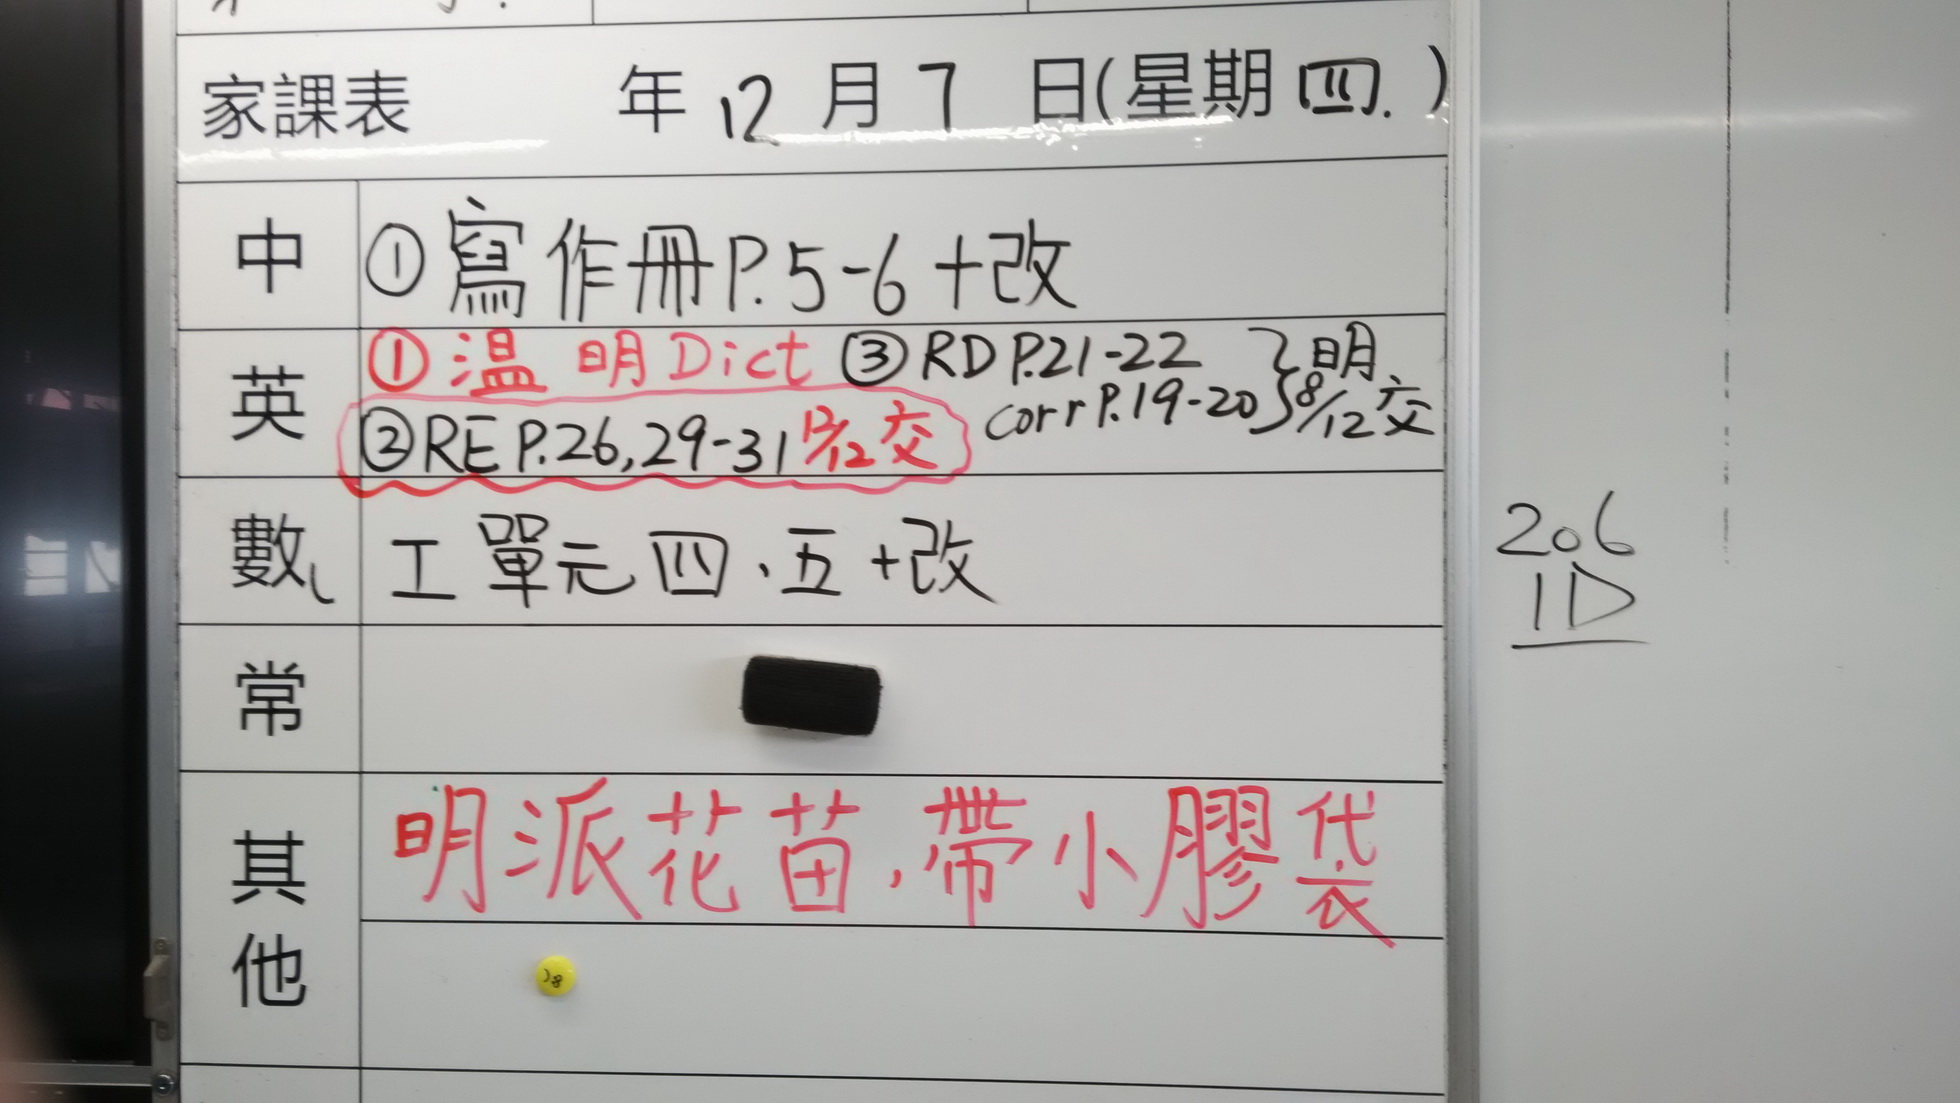 家課表 年 12 月 7 日(星期 四. )
中 ① 寫作冊 P.5-6 + 改
英 ① 温 明 Dict ③ RD P.21-22 } 明
corr P.19-20 } 8/12 交
② RE P.26, 29-31 12/12 交
數 工 單元 四、五 + 改
常
其他 明派花苗,帶小膠袋
206
1D